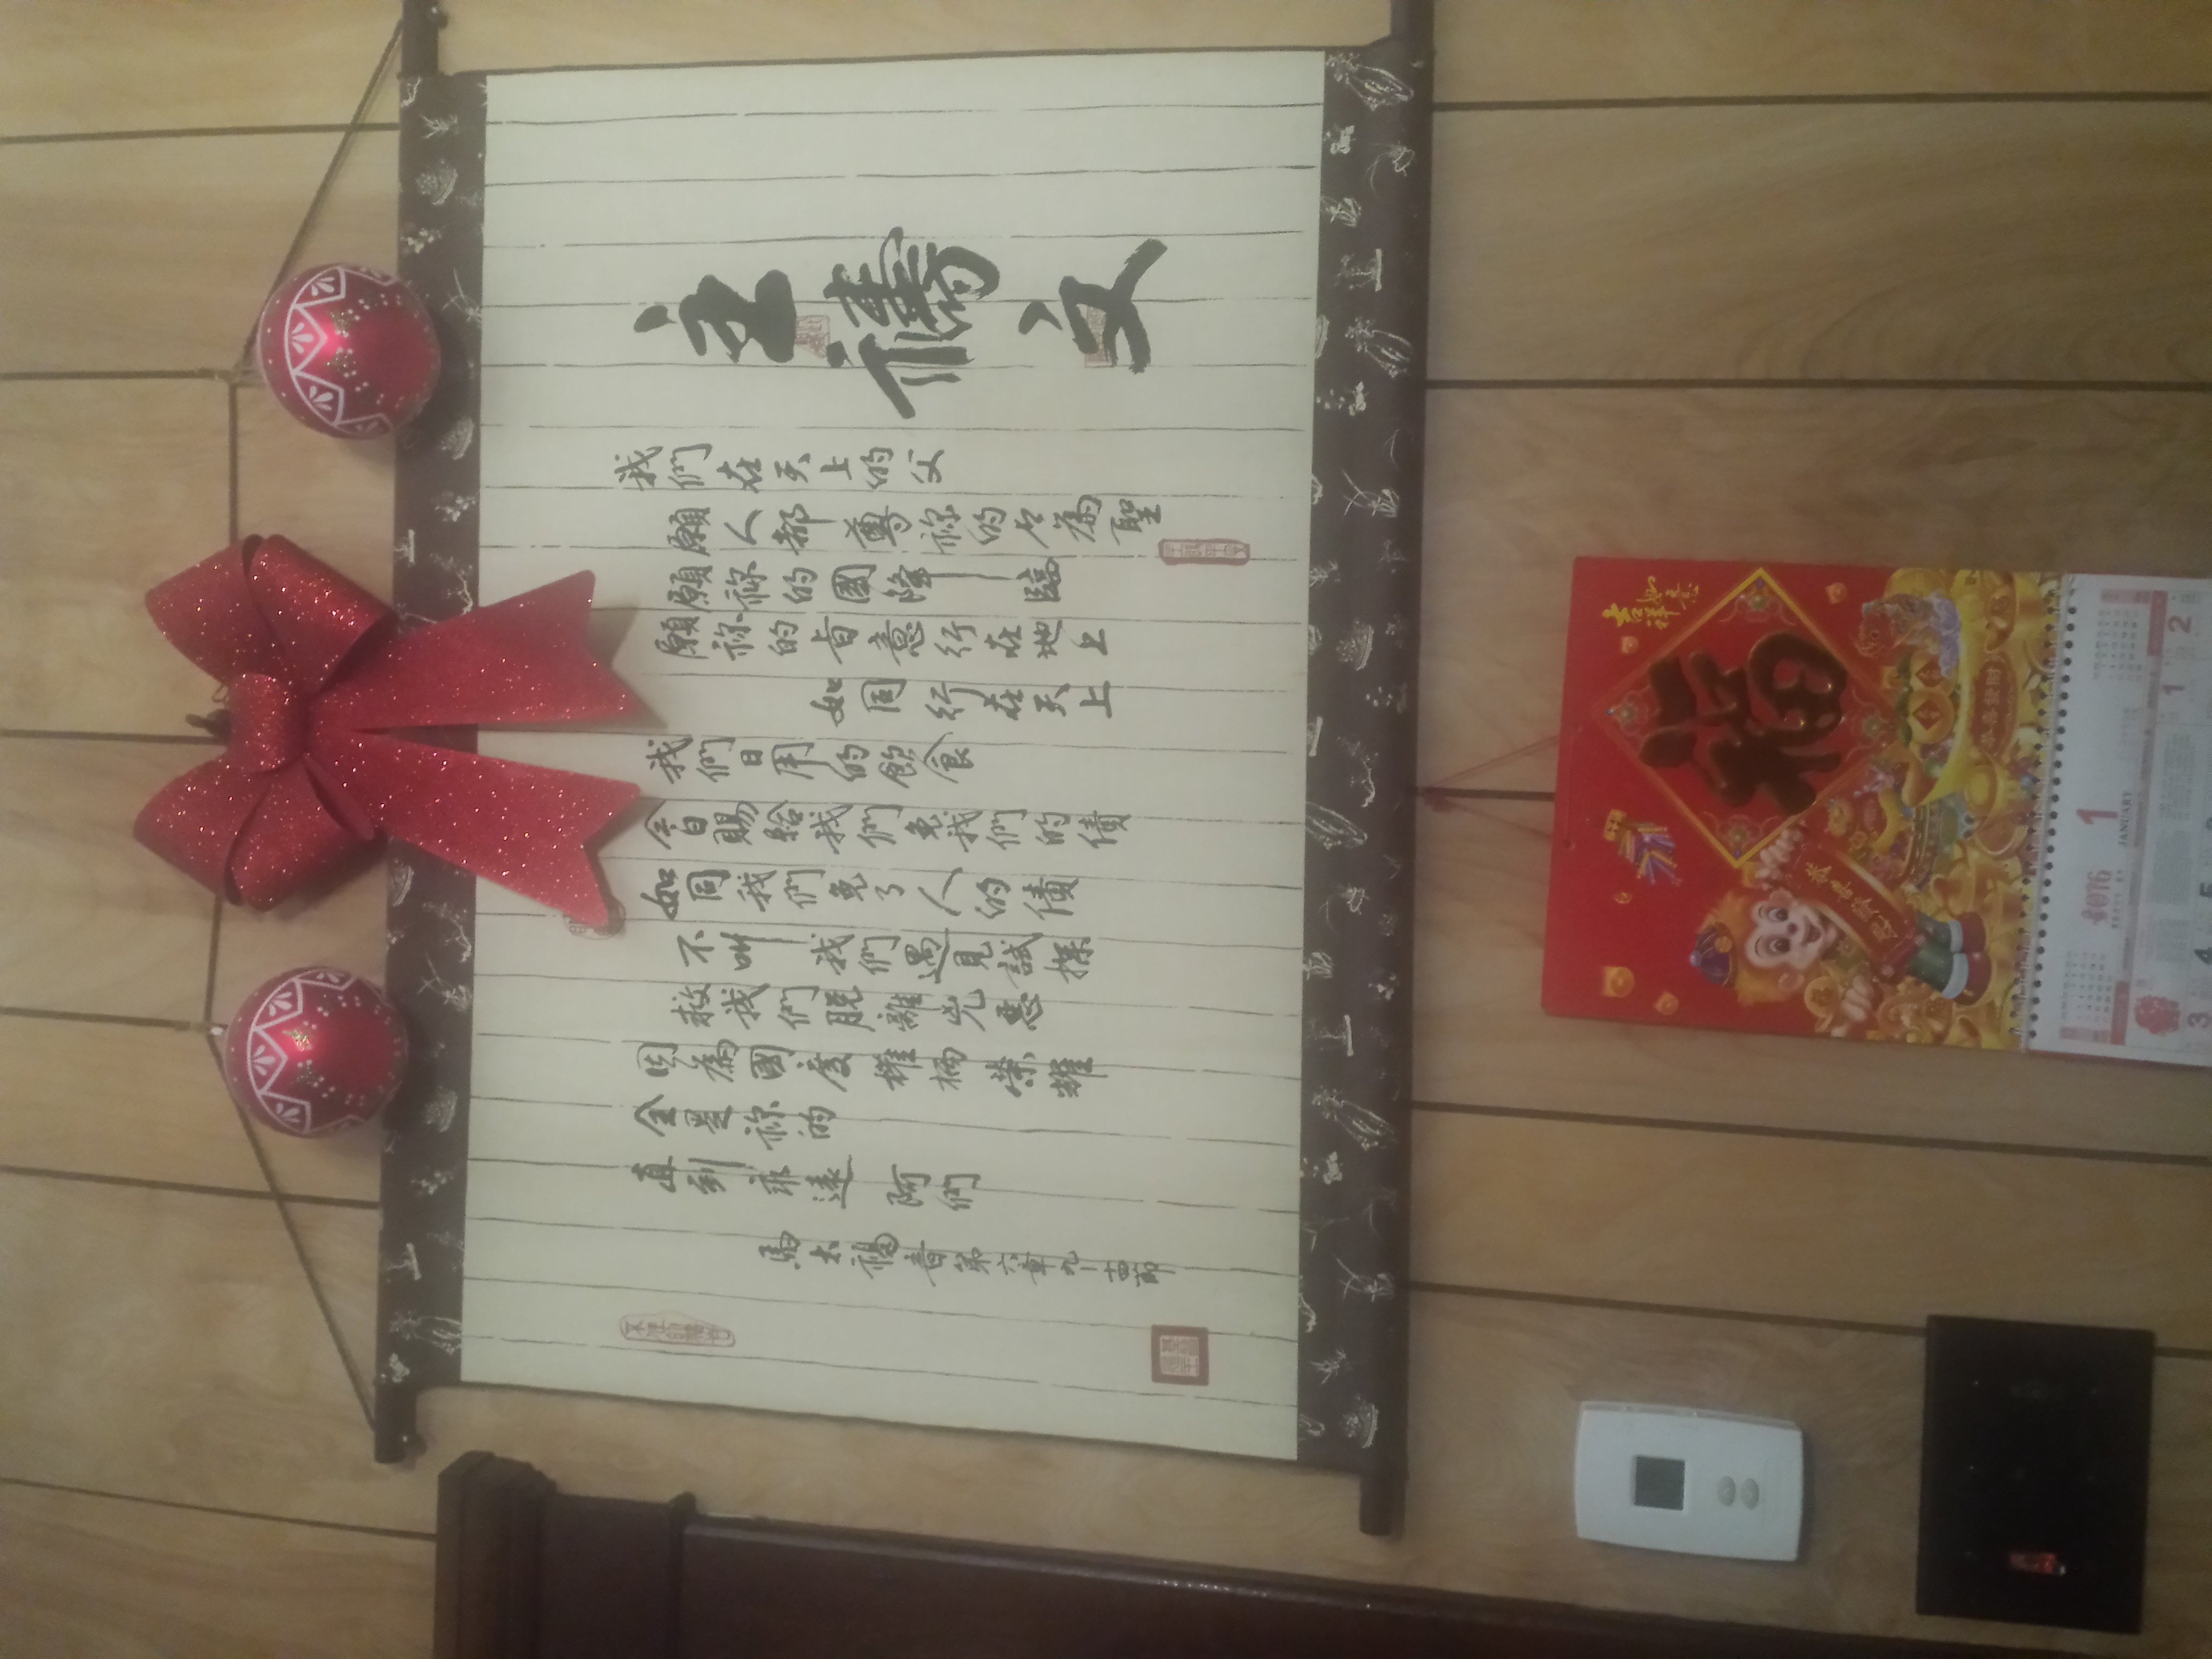 主禱文
我們在天上的父
願人都尊祢的名為聖
願祢的國降臨
願祢的旨意行在地上
如同行在天上
我們日用的飲食
今日賜給我們免我們的債
如同我們免了人的債
不叫我們遇見試探
救我們脫離兇惡
因為國度權柄榮耀
全是祢的
直到永遠阿們
馬太福音第六章九-十四節
吉祥如意
福
恭喜發財
恭喜發財
2016
1
JANUARY
1
2
3
4
5